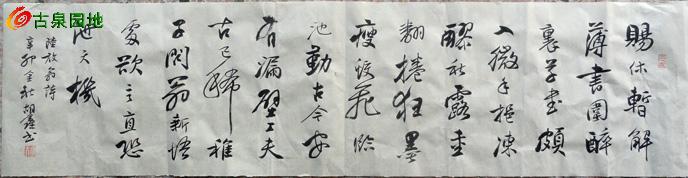 古泉园地
賜休暫解
薄書圍醉
裏草書頗
入微手挹凍
醪秋露重
翻捲狂墨
瘦蛟飛臨
池勤古今安
有漏壁工夫
古已稀稚
子問翁新悟
處欲言直恐
泄天機
陸放翁詩
辛卯金秋胡鑫書